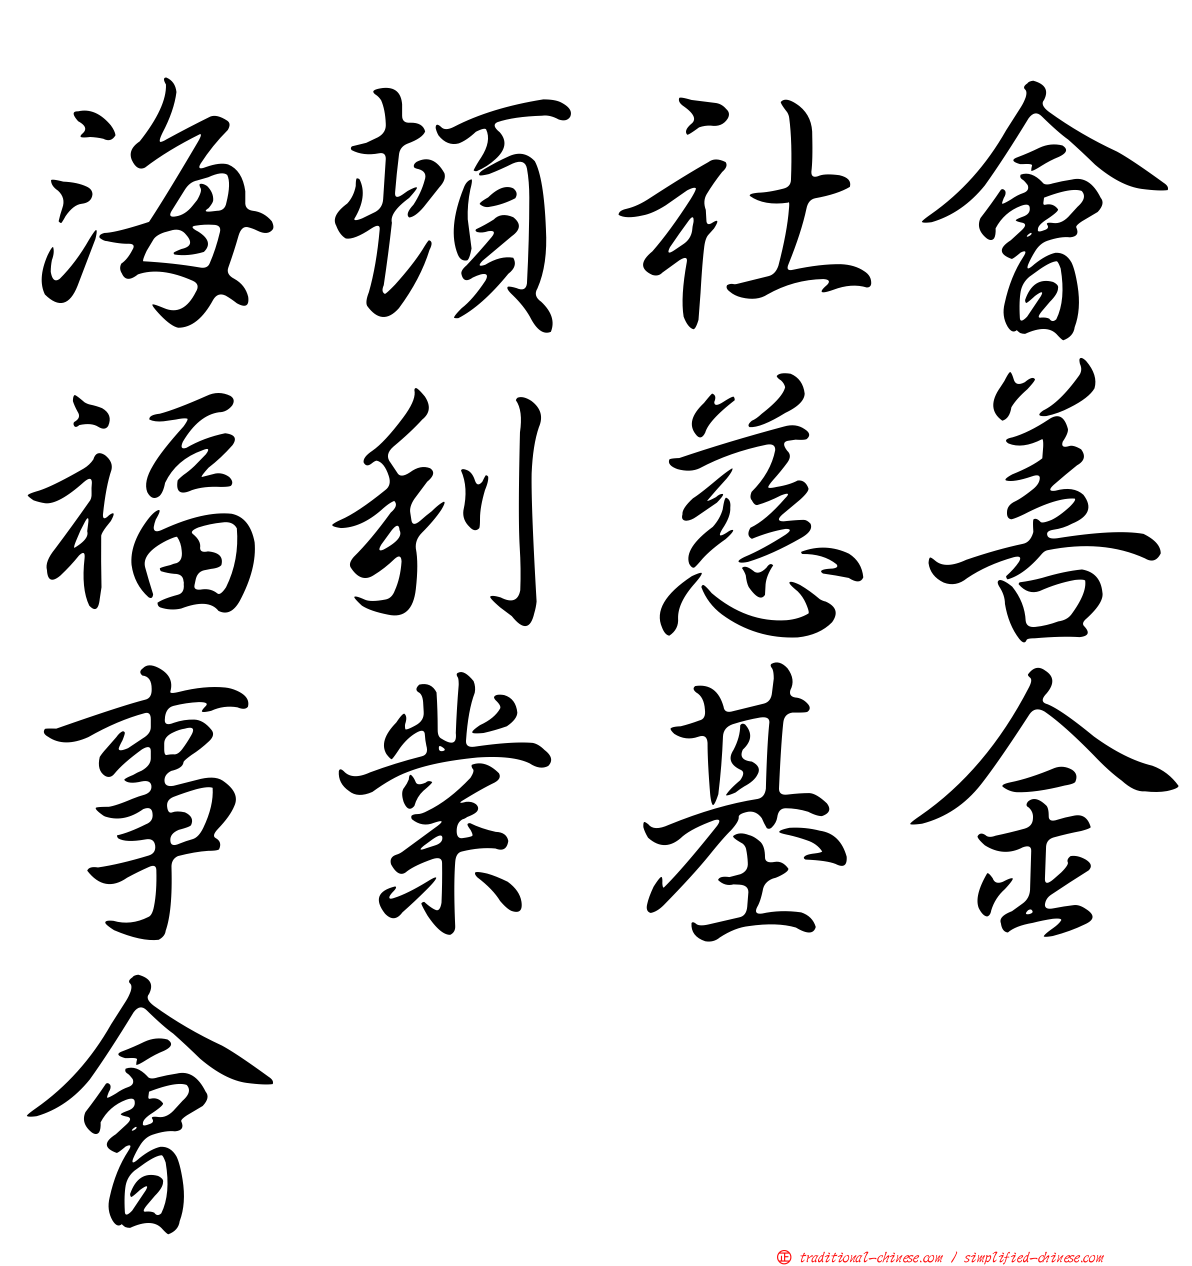 海頓社會
福利慈善
事業基金
會
正 traditional-chinese.com / simplified-chinese.com